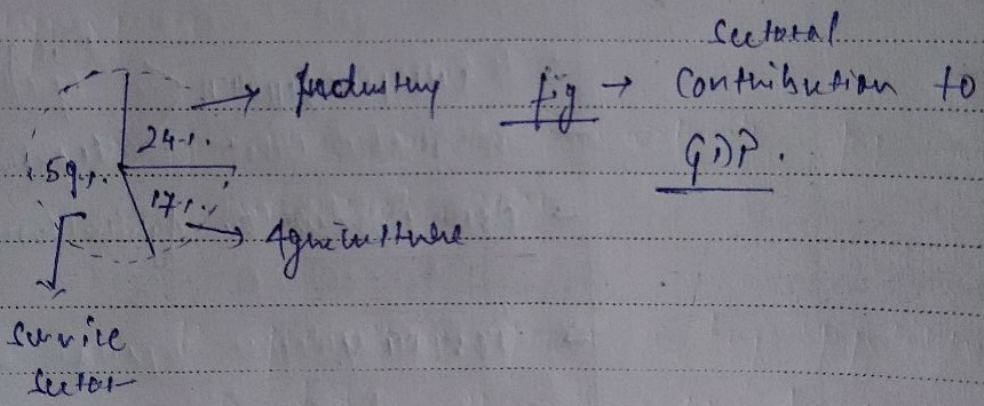 Sectoral
Industry fig → Contribution to
24%.
GDP.
59%.
17%.
Agriculture
Service
Sector